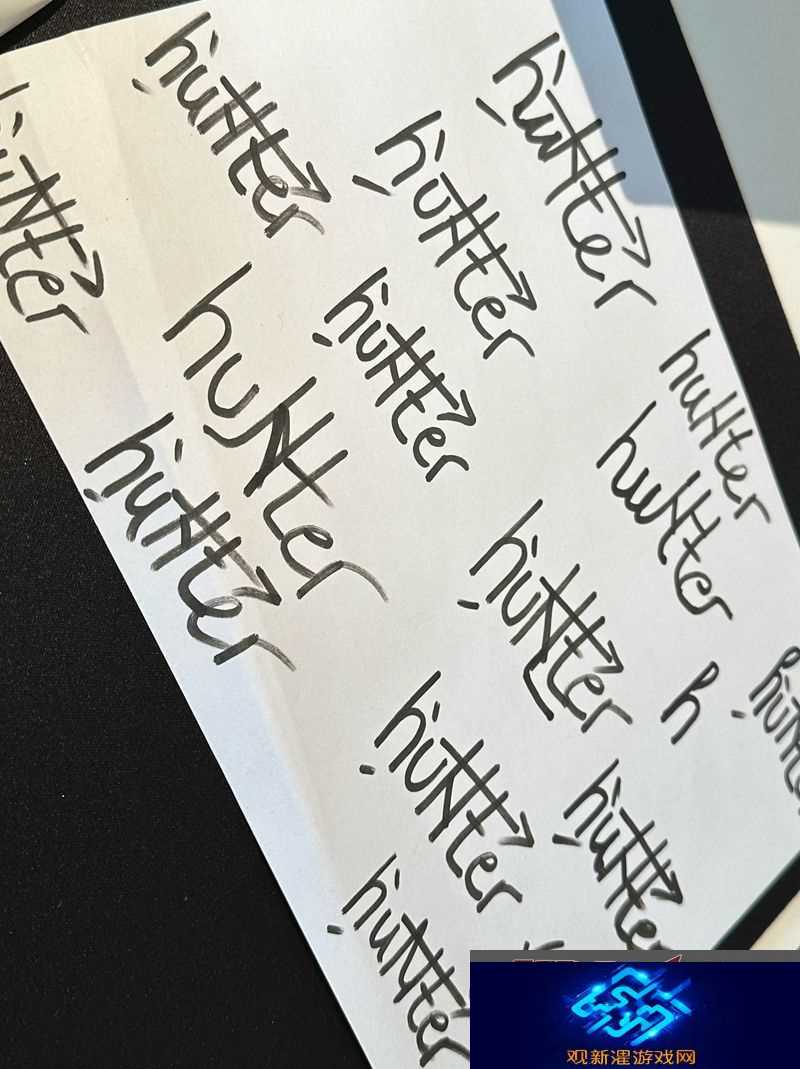 hunter
hunter
hunter
hunter
hunter
hunter
hunter
hunter
hunter
hunter
hunter
h
hunter
hunter
hunter
观新濯游戏网